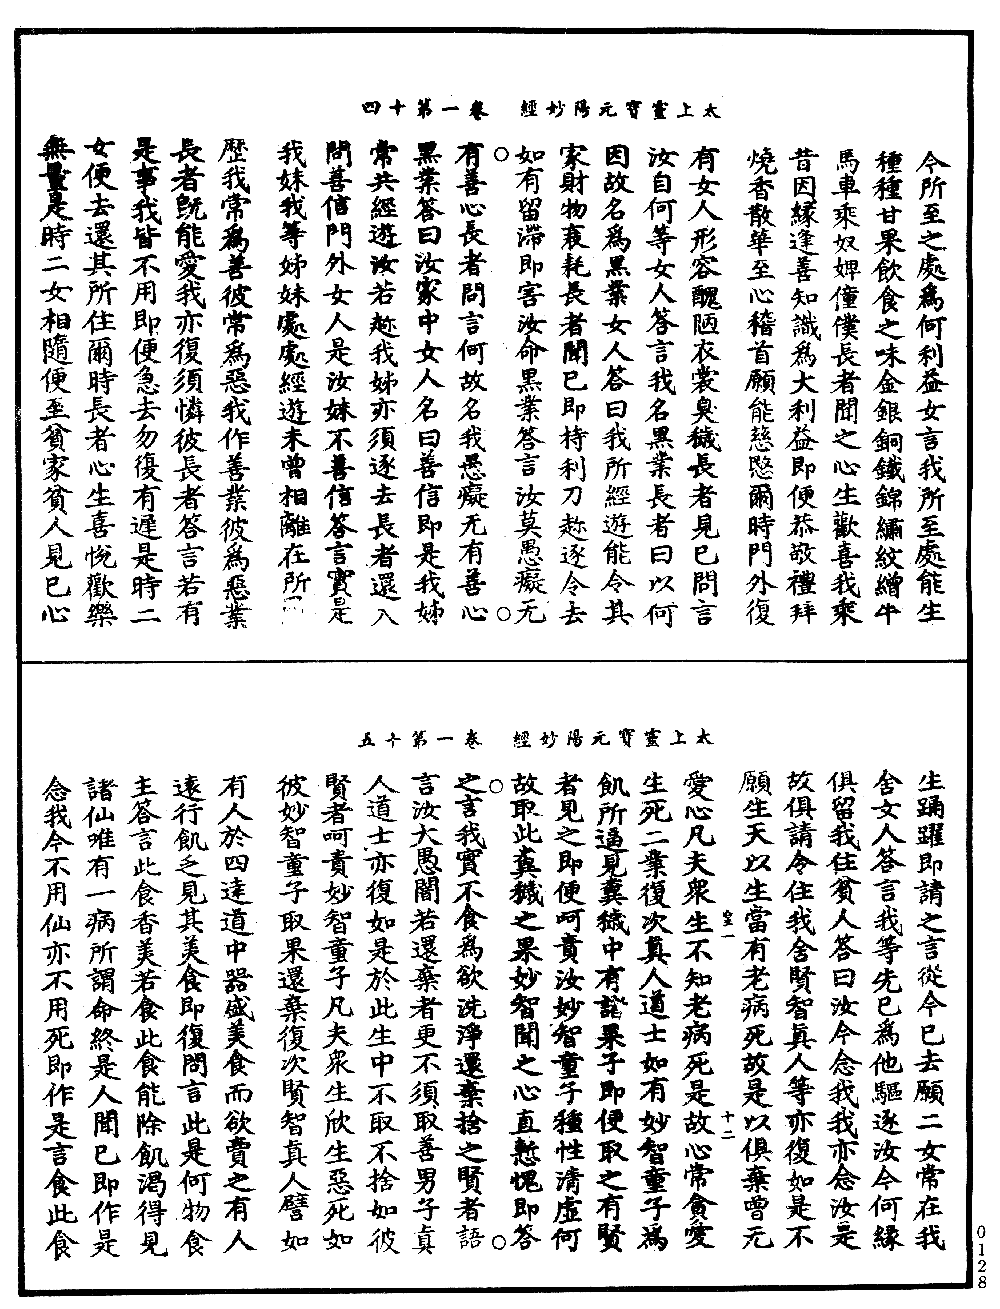 太上靈寶元陽妙經　卷一第十四
今所至之處爲何利益女言我所至處能生
種種甘果飲食之味金銀銅鐵錦繡紋繒牛
馬車乘奴婢僮僕長者聞之心生歡喜我乘
昔因緣逢善知識爲大利益即便恭敬禮拜
燒香散華至心稽首願能慈愍爾時門外復
有女人形容醜陋衣裳臭穢長者見已問言
汝自何等女人答言我名黑業長者曰以何
因故名爲黑業女人答曰我所經遊能令其
家財物衰耗長者聞已即持利刀趂逐令去
如有留滯即害汝命黑業答言汝莫愚癡无
有善心長者問言何故名我愚癡无有善心
黑業答曰汝家中女人名曰善信即是我姊
常共經遊汝若趂我姊亦須逐去長者還入
問善信門外女人是汝妹不善信答言實是
我妹我等姊妹處處經遊未曾相離在所
歷我常爲善彼常爲惡我作善業彼爲惡業
長者旣能愛我亦復須憐彼長者答言若有
是事我皆不用即便急去勿復有遲是時二
女便去還其所住爾時長者心生喜悅歡樂
無量是時二女相隨便至貧家貧人見已心
太上靈寶元陽妙經　卷一第十五
生踊躍即請之言從今已去願二女常在我
舍女人答言我等先已爲他驅逐汝今何緣
俱留我住貧人答曰汝今念我我亦念汝是
故俱請令住我舍賢智眞人等亦復如是不
願生天以生當有老病死故是以俱棄曾无
愛心凡夫衆生不知老病死是故心常貪愛
生死二業復次真人道士如有妙智童子爲
飢所逼見糞穢中有諸果子即便取之有賢
者見之即便呵責汝妙智童子種性清虛何
故取此糞穢之果妙智聞之心直慙愧即答
之言我實不食爲欲洗淨還棄捨之賢者語
言汝大愚闇若還棄者更不須取善男子眞
人道士亦復如是於此生中不取不捨如彼
賢者呵責妙智童子凡夫衆生欣生惡死如
彼妙智童子取果還棄復次賢智真人譬如
有人於四達道中器盛美食而欲賣之有人
遠行飢乏見其美食即復問言此是何物食
主答言此食香美若食此食能除飢渴得見
諸仙唯有一病所謂命終是人聞已即作是
念我今不用仙亦不用死即作是言食此食
十二
0128